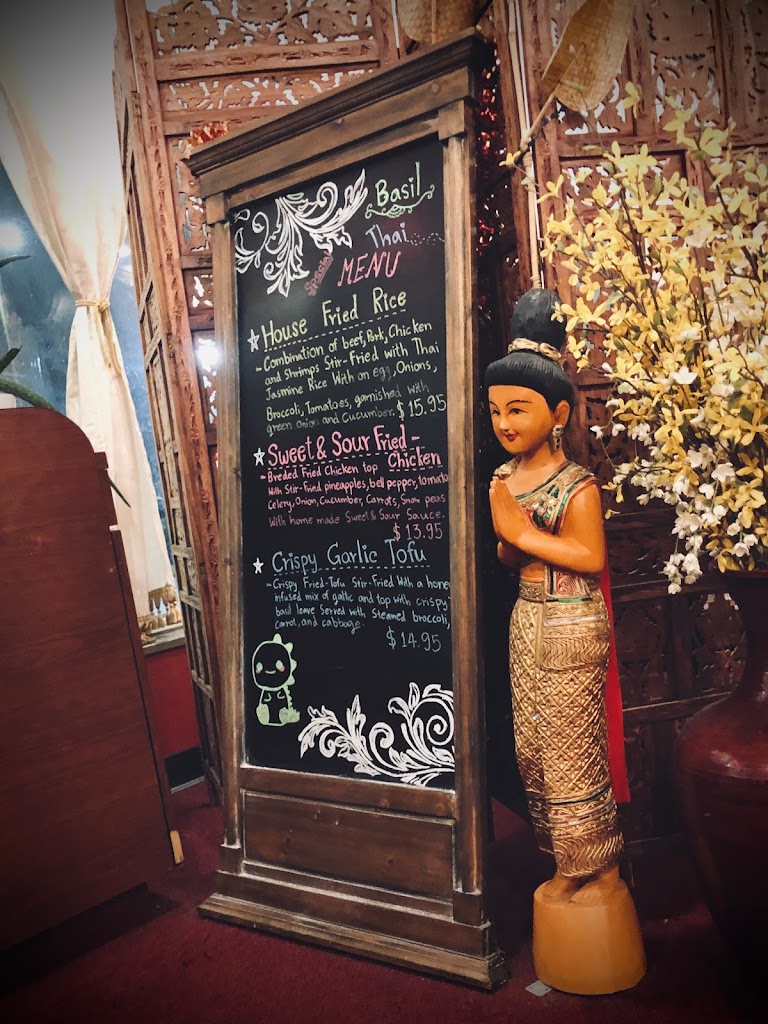 Basil
Thai
Special
MENU
House Fried Rice
- Combination of beef, Pork, Chicken
and Shrimps Stir-Fried with Thai
Jasmine Rice With an egg, Onions,
Broccoli, Tomatoes, garnished with
green onion and Cucumber. $15.95
Sweet & Sour Fried -
Chicken
- Breded Fried Chicken top
With Stir-Fried pineapples, bell pepper, tomato
Celery, Onion, Cucumber, Carrots, Snow peas
With home made Sweet & Sour Sauce.
$13.95
Crispy Garlic Tofu
- Crispy Fried-Tofu Stir-Fried With a hone
infused mix of galtic and top with crispy
basil leave Served with Steamed broccoli,
carrot, and cabbage.
$14.95